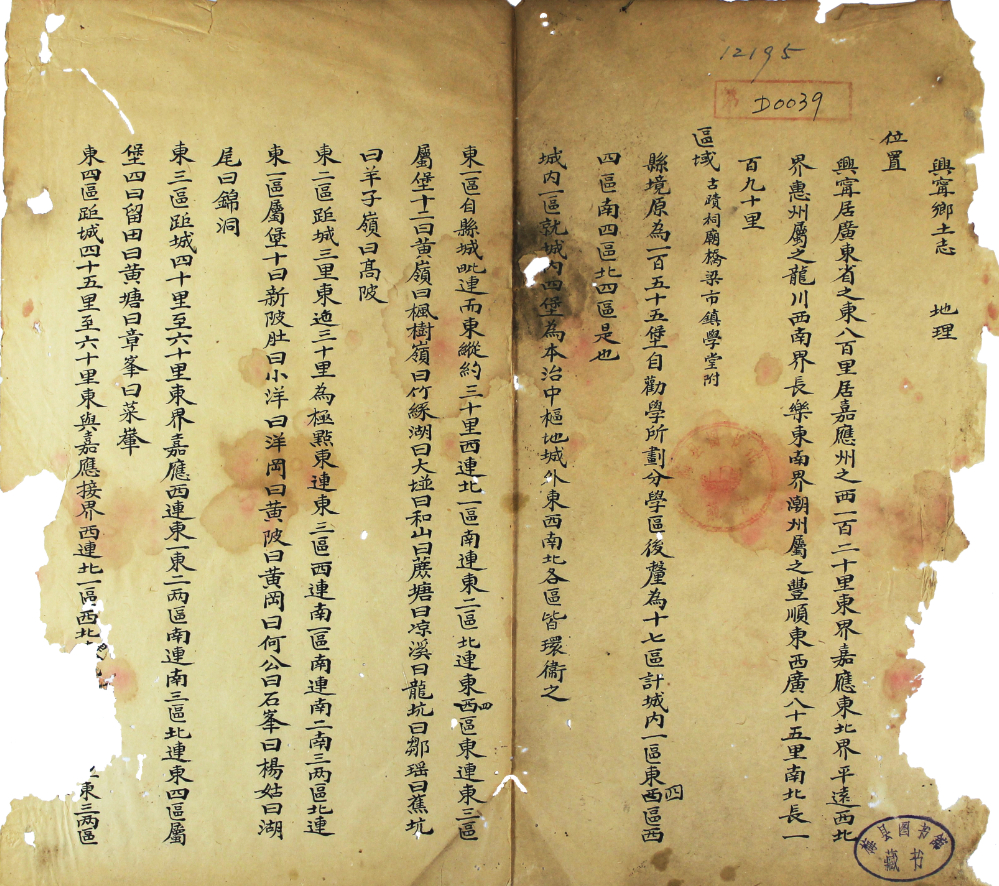 12195
D0039
興甯鄉土志 地理
位置
興甯居廣東省之東八百里居嘉應州之西一百二十里東界嘉應東北界平遠西北
界惠州屬之龍川西南界長樂東南界潮州屬之豐順東西廣八十五里南北長一
百九十里
區域 古蹟祠廟橋梁市鎮學堂附
縣境原為一百五十五堡自勸學所劃分學區後釐為十七區計城內一區東四西區西
四區南四區北四區是也
城內一區就城內四堡為本治中樞地城外東西南北各區皆環衞之
東一區自縣城毗連而東縱約三十里西連北一區南連東二區北連東四西區東連東三區
屬堡十二曰黃嶺曰楓樹嶺曰竹絲湖曰大𡋾曰和山曰蔗塘曰凉溪曰龍坑曰鄒瑶曰蕉坑
曰羊子嶺曰高陂
東二區距城三里東迤三十里為極點東連東三區西連南一區南連南二南三两區北連
東一區屬堡十曰新陂肚曰小洋曰洋岡曰黃陂曰黃岡曰何公曰石峯曰楊姑曰湖
尾曰錦洞
東三區距城四十里至六十里東界嘉應西連東一東二两區南連南三區北連東四區屬
堡四曰留田曰黃塘曰章峯曰菜
東四區距城四十五里至六十里東與嘉應接界西連北一區西北
東三两區
縣图书館
藏书